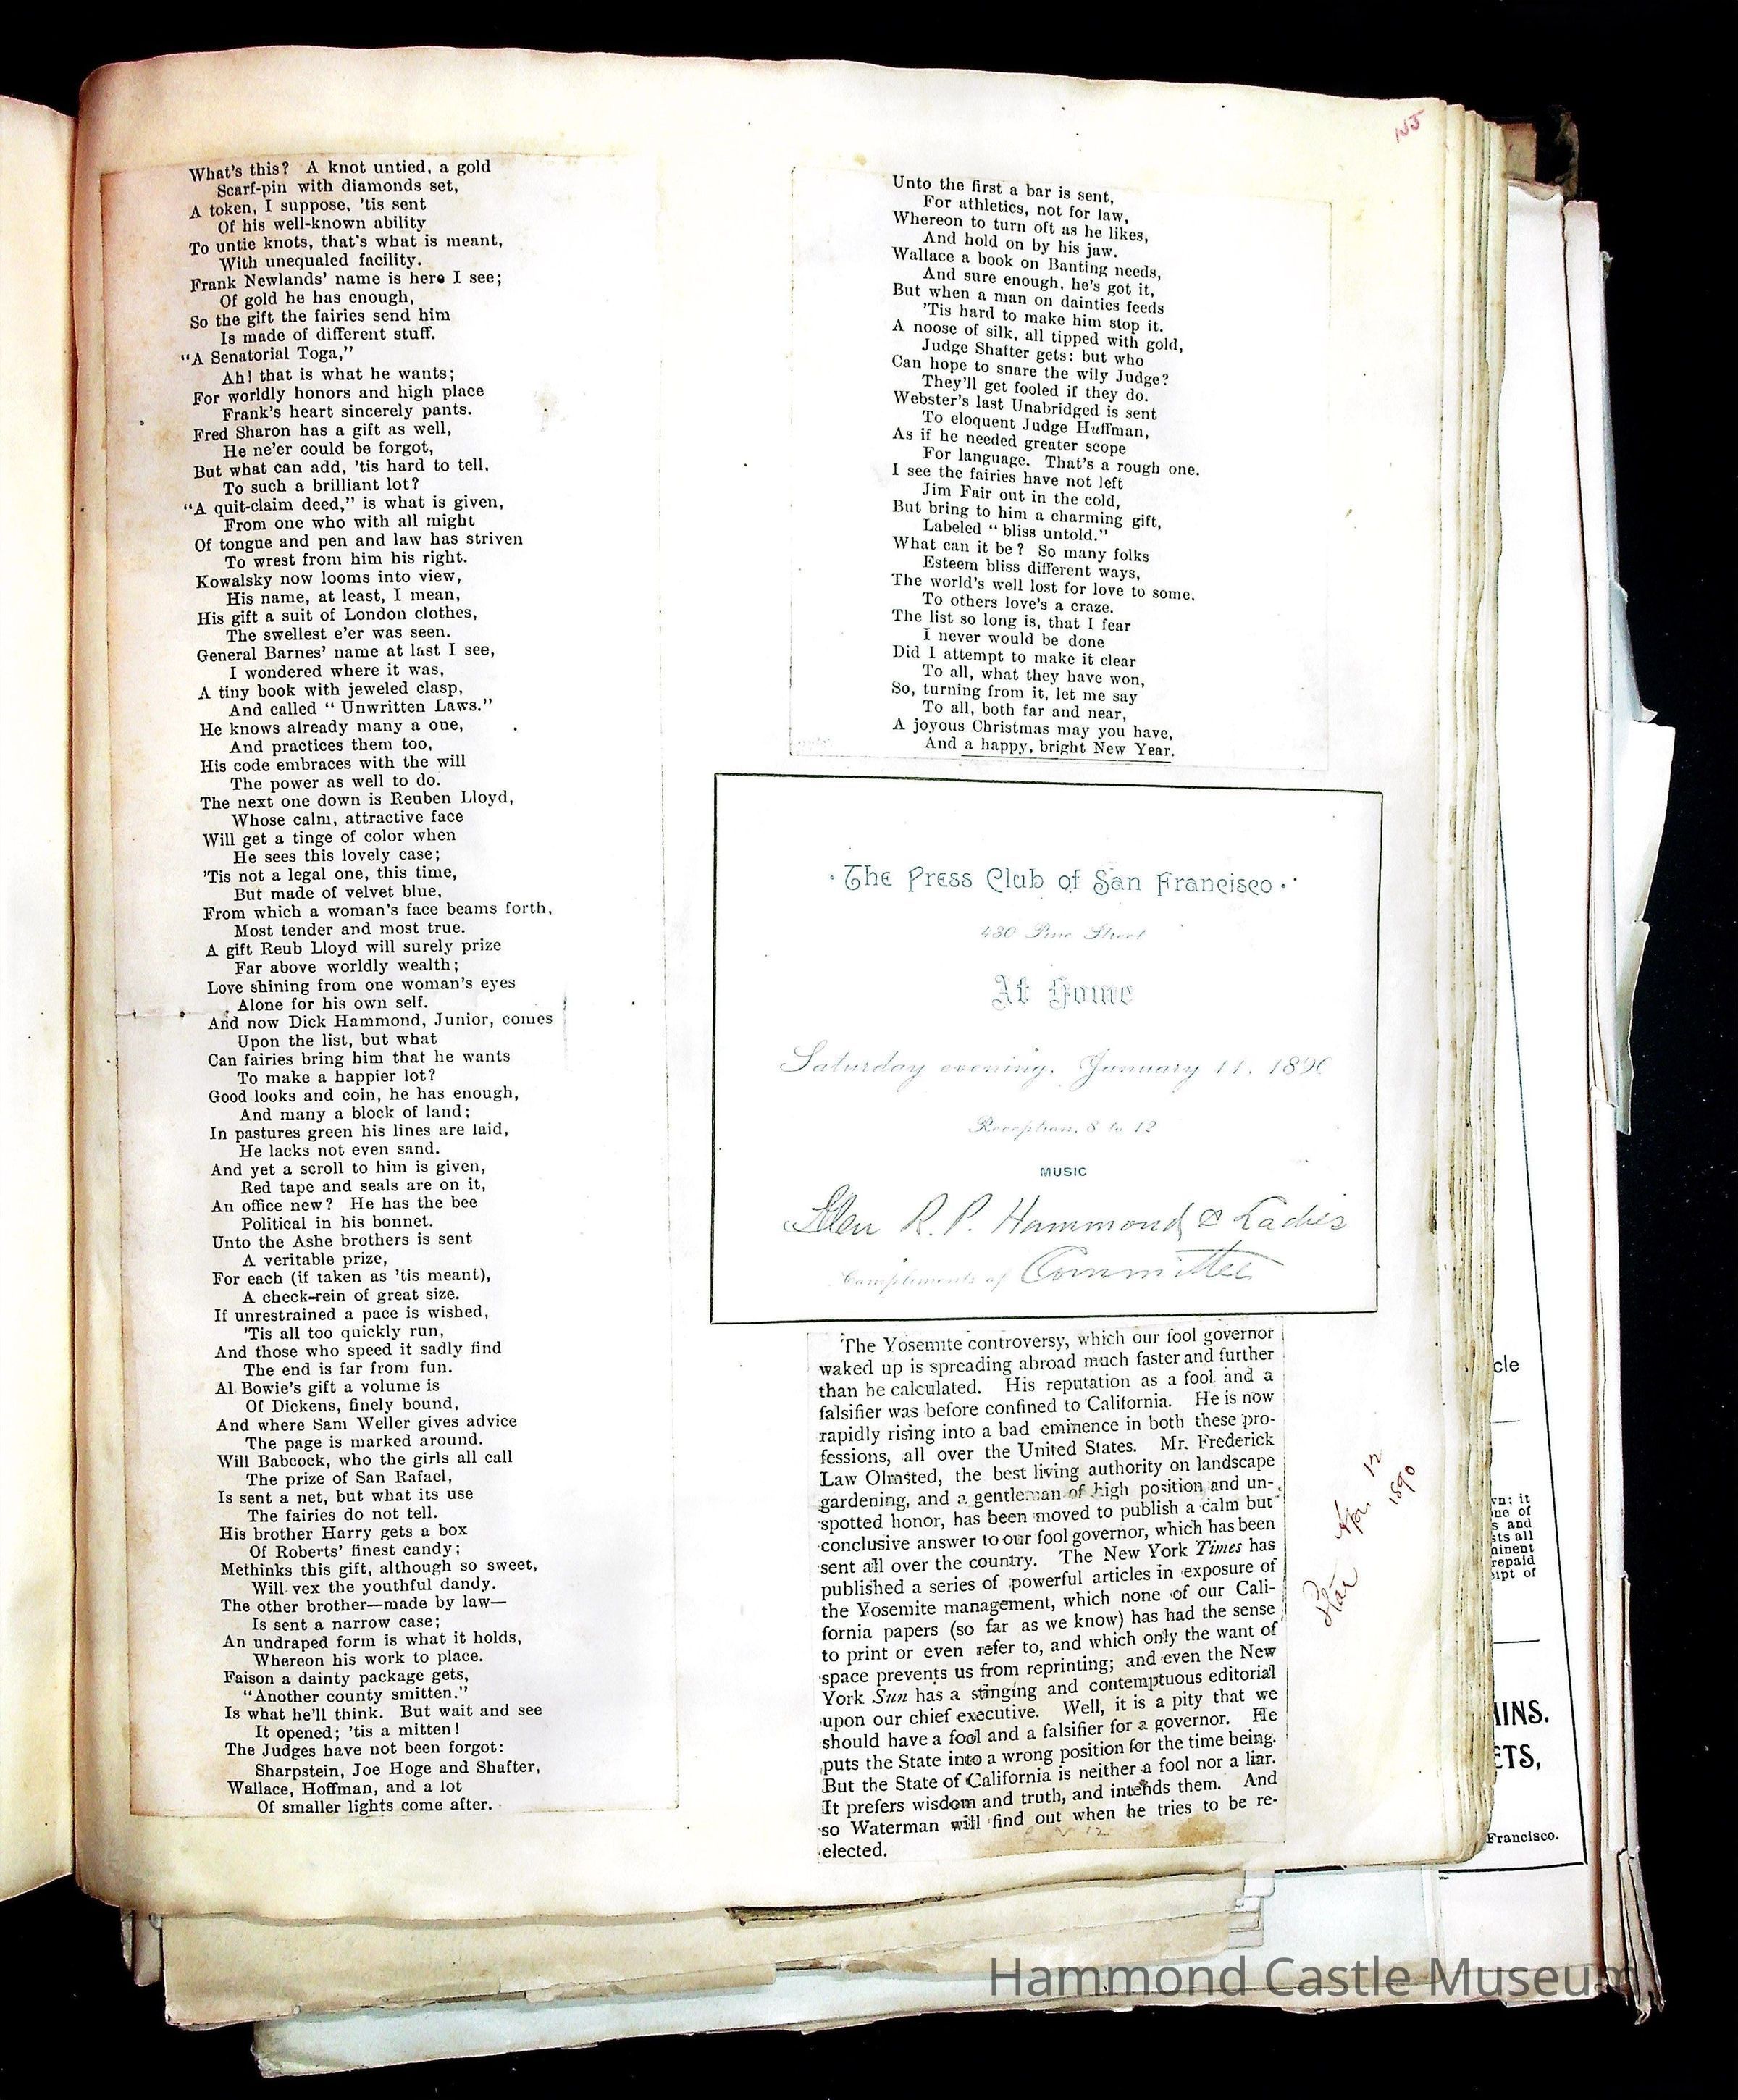 155
What's this? A knot untied, a gold
Scarf-pin with diamonds set,
A token, I suppose, 'tis sent
Of his well-known ability
To untie knots, that's what is meant,
With unequaled facility.
Frank Newlands' name is here I see;
Of gold he has enough,
So the gift the fairies send him
Is made of different stuff.
"A Senatorial Toga,"
Ah! that is what he wants;
For worldly honors and high place
Frank's heart sincerely pants.
Fred Sharon has a gift as well,
He ne'er could be forgot,
But what can add, 'tis hard to tell,
To such a brilliant lot?
"A quit-claim deed," is what is given,
From one who with all might
Of tongue and pen and law has striven
To wrest from him his right.
Kowalsky now looms into view,
His name, at least, I mean,
His gift a suit of London clothes,
The swellest e'er was seen.
General Barnes' name at last I see,
I wondered where it was,
A tiny book with jeweled clasp,
And called " Unwritten Laws."
He knows already many a one,
And practices them too,
His code embraces with the will
The power as well to do.
The next one down is Reuben Lloyd,
Whose calm, attractive face
Will get a tinge of color when
He sees this lovely case;
'Tis not a legal one, this time,
But made of velvet blue,
From which a woman's face beams forth,
Most tender and most true.
A gift Reub Lloyd will surely prize
Far above worldly wealth;
Love shining from one woman's eyes
Alone for his own self.
And now Dick Hammond, Junior, comes
Upon the list, but what
Can fairies bring him that he wants
To make a happier lot?
Good looks and coin, he has enough,
And many a block of land;
In pastures green his lines are laid,
He lacks not even sand.
And yet a scroll to him is given,
Red tape and seals are on it,
An office new? He has the bee
Political in his bonnet.
Unto the Ashe brothers is sent
A veritable prize,
For each (if taken as 'tis meant),
A check-rein of great size.
If unrestrained a pace is wished,
'Tis all too quickly run,
And those who speed it sadly find
The end is far from fun.
Al Bowie's gift a volume is
Of Dickens, finely bound,
And where Sam Weller gives advice
The page is marked around.
Will Babcock, who the girls all call
The prize of San Rafael,
Is sent a net, but what its use
The fairies do not tell.
His brother Harry gets a box
Of Roberts' finest candy;
Methinks this gift, although so sweet,
Will vex the youthful dandy.
The other brother—made by law—
Is sent a narrow case;
An undraped form is what it holds,
Whereon his work to place.
Faison a dainty package gets,
"Another county smitten."
Is what he'll think. But wait and see
It opened; 'tis a mitten!
The Judges have not been forgot:
Sharpstein, Joe Hoge and Shafter,
Wallace, Hoffman, and a lot
Of smaller lights come after.
Unto the first a bar is sent,
For athletics, not for law,
Whereon to turn oft as he likes,
And hold on by his jaw.
Wallace a book on Banting needs,
And sure enough, he's got it,
But when a man on dainties feeds
'Tis hard to make him stop it.
A noose of silk, all tipped with gold,
Judge Shafter gets: but who
Can hope to snare the wily Judge?
They'll get fooled if they do.
Webster's last Unabridged is sent
To eloquent Judge Huffman,
As if he needed greater scope
For language. That's a rough one.
I see the fairies have not left
Jim Fair out in the cold,
But bring to him a charming gift,
Labeled " bliss untold."
What can it be? So many folks
Esteem bliss different ways,
The world's well lost for love to some,
To others love's a craze.
The list so long is, that I fear
I never would be done
Did I attempt to make it clear
To all, what they have won,
So, turning from it, let me say
To all, both far and near,
A joyous Christmas may you have,
And a happy, bright New Year.
The Press Club of San Francisco
430 Pine Street
At Home
Saturday evening, January 11, 1890
Reception, 8 to 12
MUSIC
Gen R. P. Hammond & Ladies
Compliments of Committee
The Yosemite controversy, which our fool governor
waked up is spreading abroad much faster and further
than he calculated. His reputation as a fool and a
falsifier was before confined to California. He is now
rapidly rising into a bad eminence in both these pro-
fessions, all over the United States. Mr. Frederick
Law Olmsted, the best living authority on landscape
gardening, and a gentleman of high position and un-
spotted honor, has been moved to publish a calm but
conclusive answer to our fool governor, which has been
sent all over the country. The New York Times has
published a series of powerful articles in exposure of
the Yosemite management, which none of our Cali-
fornia papers (so far as we know) has had the sense
to print or even refer to, and which only the want of
space prevents us from reprinting; and even the New
York Sun has a stinging and contemptuous editorial
upon our chief executive. Well, it is a pity that we
should have a fool and a falsifier for a governor. He
puts the State into a wrong position for the time being.
But the State of California is neither a fool nor a liar.
It prefers wisdom and truth, and intends them. And
so Waterman will find out when he tries to be re-
elected.
Star Apr. 12
1890
cle
vn; it
ne of
s and
sts all
ninent
repaid
eipt of
AINS.
ETS,
Francisco.
Hammond Castle Museum